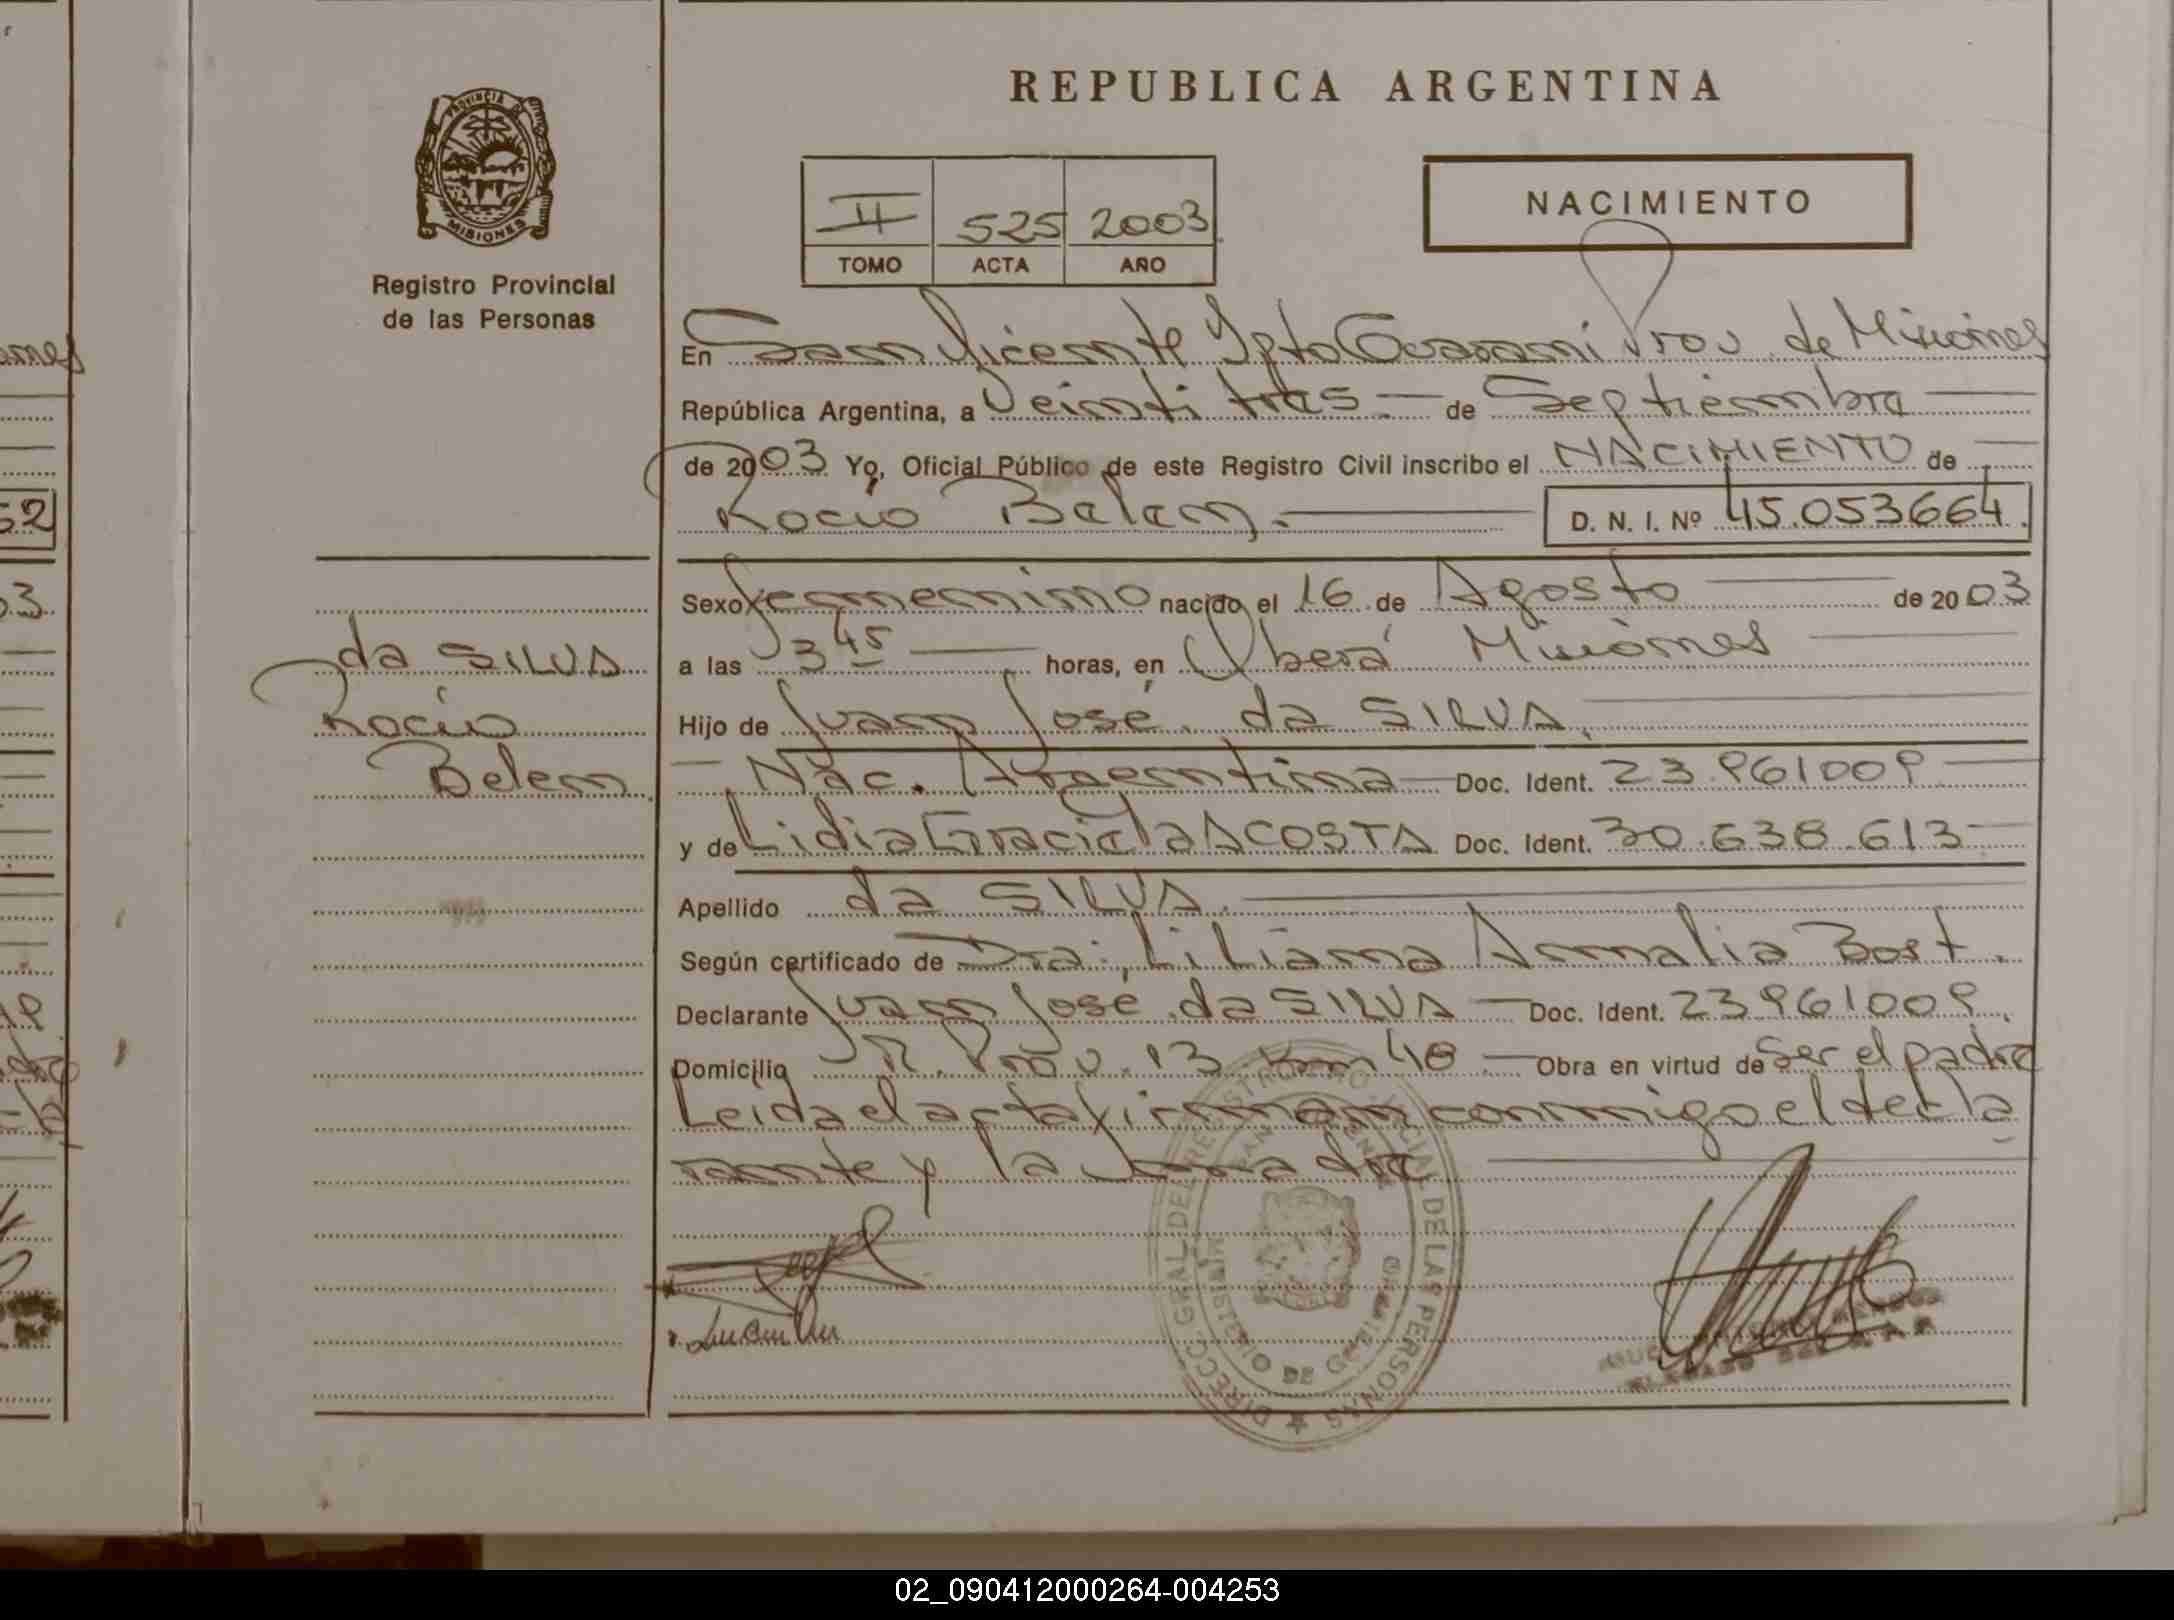 REPUBLICA ARGENTINA
PROVINCIA DE
MISIONES
Registro Provincial
de las Personas
II 525 2003
TOMO ACTA AÑO
NACIMIENTO
En San Vicente Dpto Guarani Prov. de Misiones
República Argentina, a Veinti tres de Septiembre
de 2003 Yo, Oficial Público de este Registro Civil inscribo el NACIMIENTO de
Rocio Belen. D. N. I. Nº 45.053664.
Sexo femenino nacido el 16 de Agosto de 2003
a las 3 45 horas, en Oberá Misiones
Hijo de Juan José da SILVA.
Nac. Argentina Doc. Ident. 23.961009
y de Lidia Graciela ACOSTA Doc. Ident. 30.638.613
Apellido da SILVA.
Según certificado de Dra: Liliana Annalia Bost.
Declarante Juan José da SILVA Doc. Ident. 23961009.
Domicilio R. Prov. 13 Km 48 Obra en virtud de Ser el padre
Leida el acta firman conmigo el decla
rante y la madre
da SILVA
Rocio
Belen
52
03
02_090412000264-004253